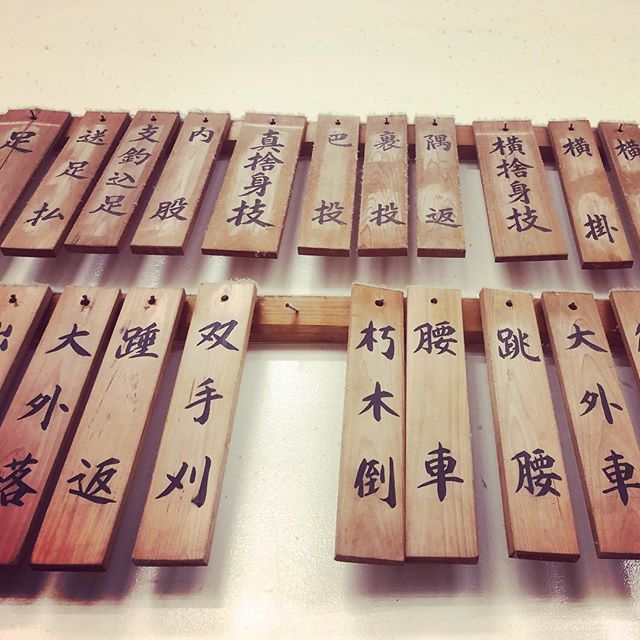 足
送足払
支釣込足
内股
真捨身技
巴投
裏投
隅返
横捨身技
横掛
横
大外落
踵返
双手刈
朽木倒
腰車
跳腰
大外車